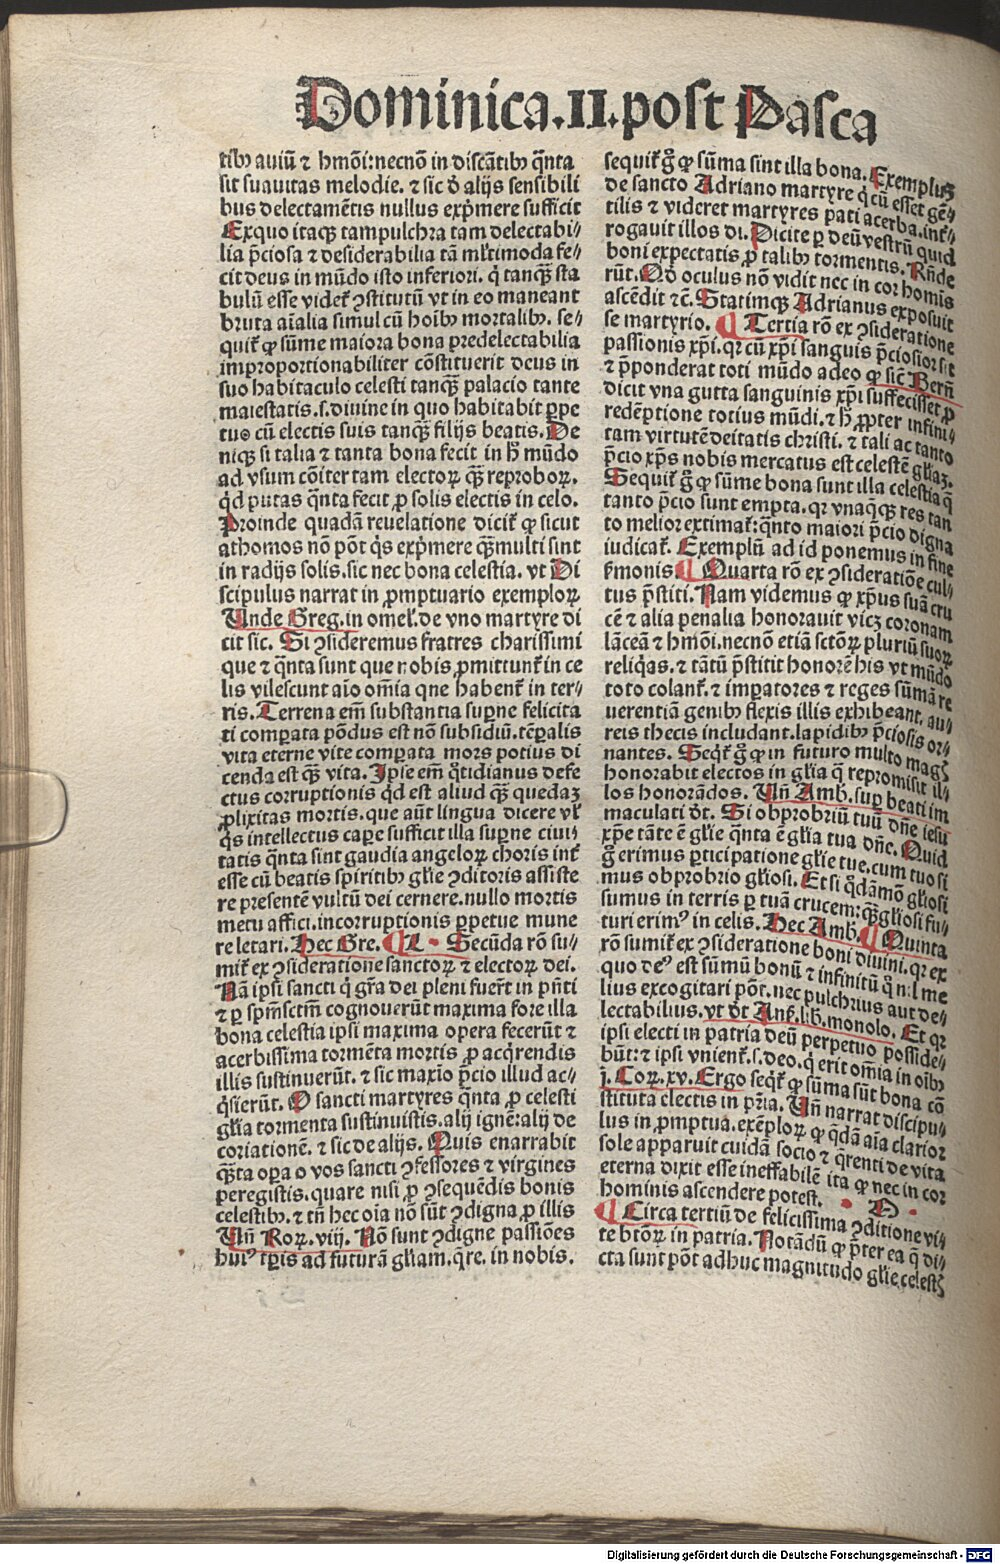 Dominica.II.post Pasca
tibꝫ auiū ⁊ hmōi:necnō in discātibꝫ q̄nta
sit suauitas melodie. ⁊ sic d̄ alijs sensibili
bus delectamētis nullus exp̄mere sufficit
Exquo itaqꝫ tampulchra tam delectabi⸗
lia p̄ciosa ⁊ desiderabilia tā ml̓timoda fe⸗
cit deus in mūdo isto inferiori. q̇ tanqꝫ̄ sta
bulū esse videt̄ ꝯstitutū vt in eo maneant
bruta aīalia simul cū hoībꝫ mortalibꝫ. se⸗
quit̄ ꝙ sūme maiora bona ꝑredelectabilia
improportionabiliter cōstituerit deus in
suo habitaculo celesti tanqꝫ̄ palacio tante
maiestatis.s.diuine in quo habitabit ꝑpe
tuo cū electis suis tanqꝫ̄ filijs beatis. De
niqꝫ si talia ⁊ tanta bona fecit in h̄ mūdo
ad vsum cōiter tam electoꝝ qꝫ̄ reproboꝝ.
qd̓ putas q̄nta fecit ꝓ solis electis in celo.
Proinde quadā reuelatione dicit̄ ꝙ sicut
athomos nō pōt q̇s exp̄mere qꝫ̄multi sint
in radijs solis.sic nec bona celestia. vt Di
scipulus narrat in ꝓmptuario exemploꝝ
Unde Greg.in omel̓.de vno martyre di
cit sic. Si ꝯsideremus fratres charissimi
que ⁊ q̄nta sunt que nobis ꝓmittunt̄ in ce
lis vilescunt aīo om̄ia que habent̄ in ter⸗
ris. Terrena em̄ substantia suꝑne felicita
ti comꝑata pōdus est nō subsidiū.tēꝑalis
vita eterne vite comꝑata mors potius di
cenda est qꝫ̄ vita. Ipse em̄ q̊tidianus defe
ctus corruptionis qd̓ est aliud qꝫ̄ quedaꝫ
ꝓlixitas mortis.que aūt lingua dicere vl̓
q̇s intellectus caꝑe sufficit illa suꝑne ciui
tatis q̄nta sint gaudia angeloꝝ choris int̄
esse cū beatis spiritibꝫ gl̓ie ꝯditoris assiste
re presentē vultū dei cernere.nullo mortis
metu affici.incorruptionis ꝑpetue mune
re letari. Hec Gre. ¶ L · Secūda rō su⸗
mit̄ ex ꝯsideratione sanctoꝝ ⁊ electoꝝ dei.
Nā ipsi sancti q̇ gr̄a dei pleni fuer̄t in p̄nti
⁊ ꝑ spm̄sctm̄ cognouerūt maxima fore illa
bona celestia ipsi maxima opera fecerūt ⁊
acerbissima tormēta mortis ꝓ acq̇rendis
illis sustinuerūt. ⁊ sic maxīo p̄cio illud ac⸗
q̇sierūt. O sancti martyres q̄nta ꝓ celesti
gl̓ia tormenta sustinuistis.alij ignē:alij de
coriationē. ⁊ sic de alijs. Quis enarrabit
qꝫ̄ta oꝑa o vos sancti ꝯfessores ⁊ virgines
ꝑeregistis.quare nisi ꝓ ꝯsequēdis bonis
celestibꝫ. ⁊ tn̄ hec oīa nō sūt ꝯdigna ꝓ illis
Un̄ Roꝝ. viij. Nō sunt ꝯdigne passiōes
huiꝰ tꝑis ad futurā gl̓iam.q̄re. in nobis.
sequit̄ g̊ ꝙ sūma sint illa bona. Exempluꝫ
de sancto Adriano martyre q̇ cū esset gē⸗
tilis ⁊ videret martyres pati acerba.int̄⸗
rogauit illos di. Dicite ꝑ deū vestrū quid
boni expectatis ꝓ talibꝫ tormentis. Rn̄de
rūt. Qd̓ oculus nō vidit nec in cor homīs
ascēdit ⁊c̄. Statimqꝫ Adrianus exposuit
se martyrio. ¶ Tertia rō ex ꝯsideratione
passionis xp̄i.qꝛ cū xp̄i sanguis p̄ciosior sit
⁊ p̄ponderat toti mūdo adeo ꝙ sic̄ Bern̄
dicit vna gutta sanguinis xp̄i suffecisset ꝓ
redēptione totius mūdi. ⁊ h̄ ꝓpter infini⸗
tam virtutē deitatis christi. ⁊ tali ac tanto
p̄cio xp̄s nobis mercatus est celestē gl̓iaꝫ.
Sequit̄ g̊ ꝙ sūme bona sunt illa celestia q̄
tanto p̄cio sunt empta.qꝛ vnaqꝫqꝫ res tan
to melior extimat̄:q̄nto maiori p̄cio digna
iudicat̄. Exemplū ad id ponemus in fine
s̄monis. ¶ Quarta rō ex ꝯsideratiōe cul⸗
tus p̄stiti. Nam videmus ꝙ xp̄us suā cru
cē ⁊ alia penalia honorauit vicꝫ coronam
lāceā ⁊ hmōi.necnō etiā sctōꝝ pluriū suoꝝ
reliq̇as. ⁊ tātū p̄stitit honorē his vt mūdo
toto colant̄. ⁊ imꝑatores ⁊ reges sūmā re
uerentiā genibꝫ flexis illis exhibeant. au⸗
reis thecis includant.lapidibꝫ p̄ciosis or⸗
nantes. Seqt̄ g̊ ꝙ in futuro multo magꝭ
honorabit electos in gl̓ia q̄ repromisit il⸗
los honorādos. Un̄ Amb.suꝑ beati im
maculati dt̄. Si obprobriū tuū dn̄e iesu
xp̄e tāte ē gl̓ie q̄nta ē gl̓ia tua dn̄e. Quid
g̊ erimus ꝑticipatione gl̓ie tue.cum tuo si
mus obprobrio gl̓iosi. Et si q̊dāmō gl̓iosi
sumus in terris ꝑ tuā crucem:qꝫ̄gl̓iosi fu⸗
turi erimꝰ in celis. Hec Amb. ¶ Quinta
rō sumit̄ ex ꝯsideratione boni diuini.qꝛ ex
quo deꝰ est sūmū bonū ⁊ infinitū q̊ nil me
lius excogitari pōt.nec pulchrius aut de⸗
lectabilius.vt dt̄ Anẜ.lib.monolo. Et qꝛ
ipsi electi in patria deū perpetuo posside⸗
būt: ⁊ ipsi vnient̄.s.deo.q̇ erit om̄ia in oībꝫ
j̄. Coꝝ. xv. Ergo seqt̄ ꝙ sūma sūt bona cō
stituta electis in pr̄ia. Un̄ narrat discipu⸗
lus in ꝓmptua.exēploꝝ ꝙ q̄dā aīa clarior
sole apparuit cuidā socio ⁊ q̄renti de vita
eterna dixit esse ineffabilē ita ꝙ nec in cor
hominis ascendere potest. · M ·
¶ Circa tertiū de felicissima ꝯditione vi⸗
te btōꝝ in patria. Notādū ꝙ p̄ter ea q̄ di⸗
cta sunt pōt adhuc magnitudo gl̓ie celestꝭ
Digitalisierung gefördert durch die Deutsche Forschungsgemeinschaft - DFG